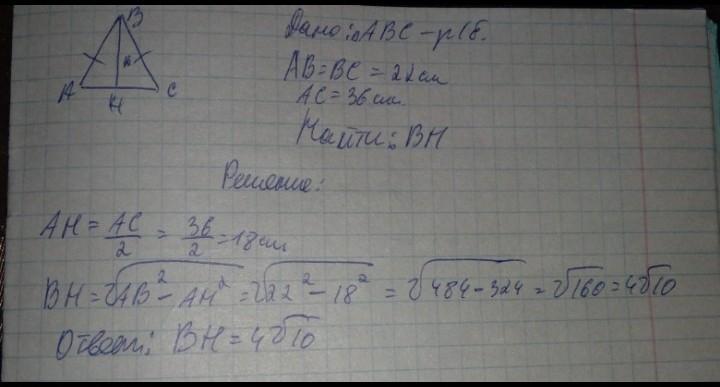 B
A
H
C
Дано: △ABC - р/б.
AB = BC = 22 см
AC = 36 см.
Найти: BH
Решение:
AH = AC/2 = 36/2 = 18 см
BH = √(AB² - AH²) = √(22² - 18²) = √(484 - 324) = √160 = 4√10
Ответ: BH = 4√10